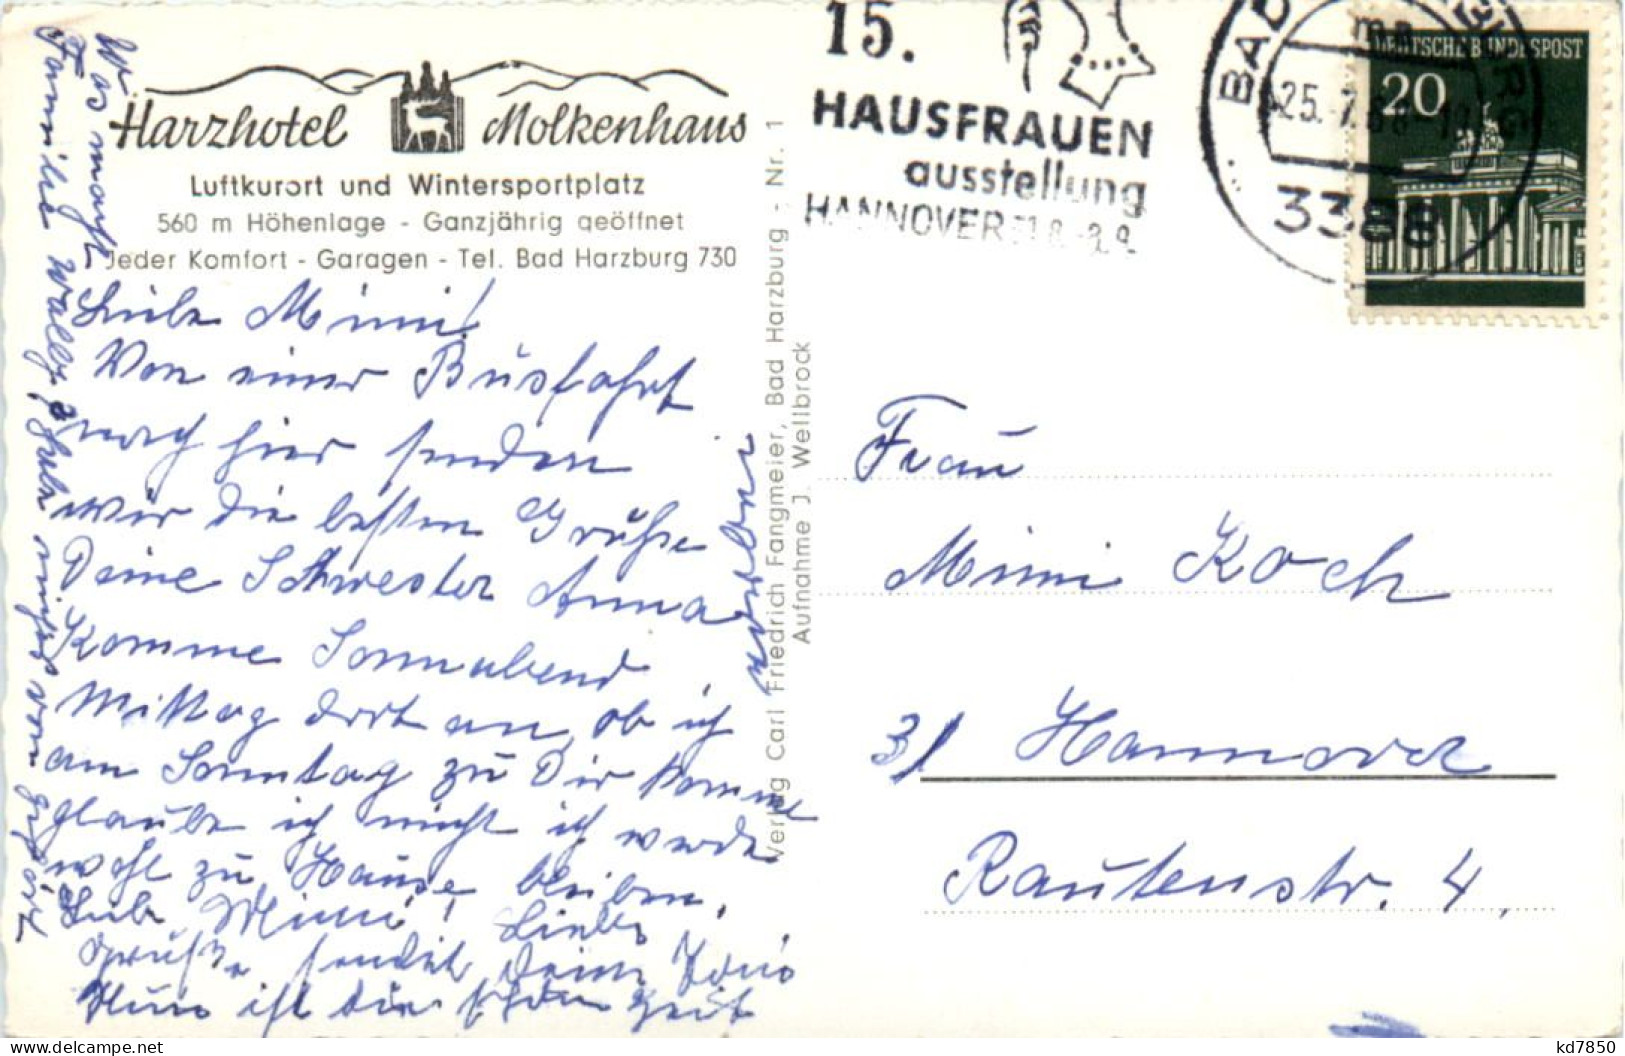 Harzhotel Molkenhaus
Luftkurort und Wintersportplatz
560 m Höhenlage - Ganzjährig geöffnet
Jeder Komfort - Garagen - Tel. Bad Harzburg 730
Liebe Mimi!
Von einer Busfahrt
nach hier senden
wir die besten Grüße
Deine Schwester Anna
Komme Sonnabend
Mittag dort an, ob ich
am Sonntag zu Dir komme
glaube ich nicht ich werde
wohl zu Hause bleiben.
Liebe Mimi! Liebe
Grüße sendet Deine
Nun ist die schöne Zeit
Was macht
Familie habe nichts von gehört
Verlag Carl Friedrich Fangmeier, Bad Harzburg - Nr. 1
Aufnahme J. Wellbrock
15.
HAUSFRAUEN
ausstellung
HANNOVER 31.8.-8.9.
BAD HARZBURG
25.-7.68
3388
DEUTSCHE BUNDESPOST
20
Frau
Mimi Koch
31 Hannover
Rautenstr. 4.
kd7850